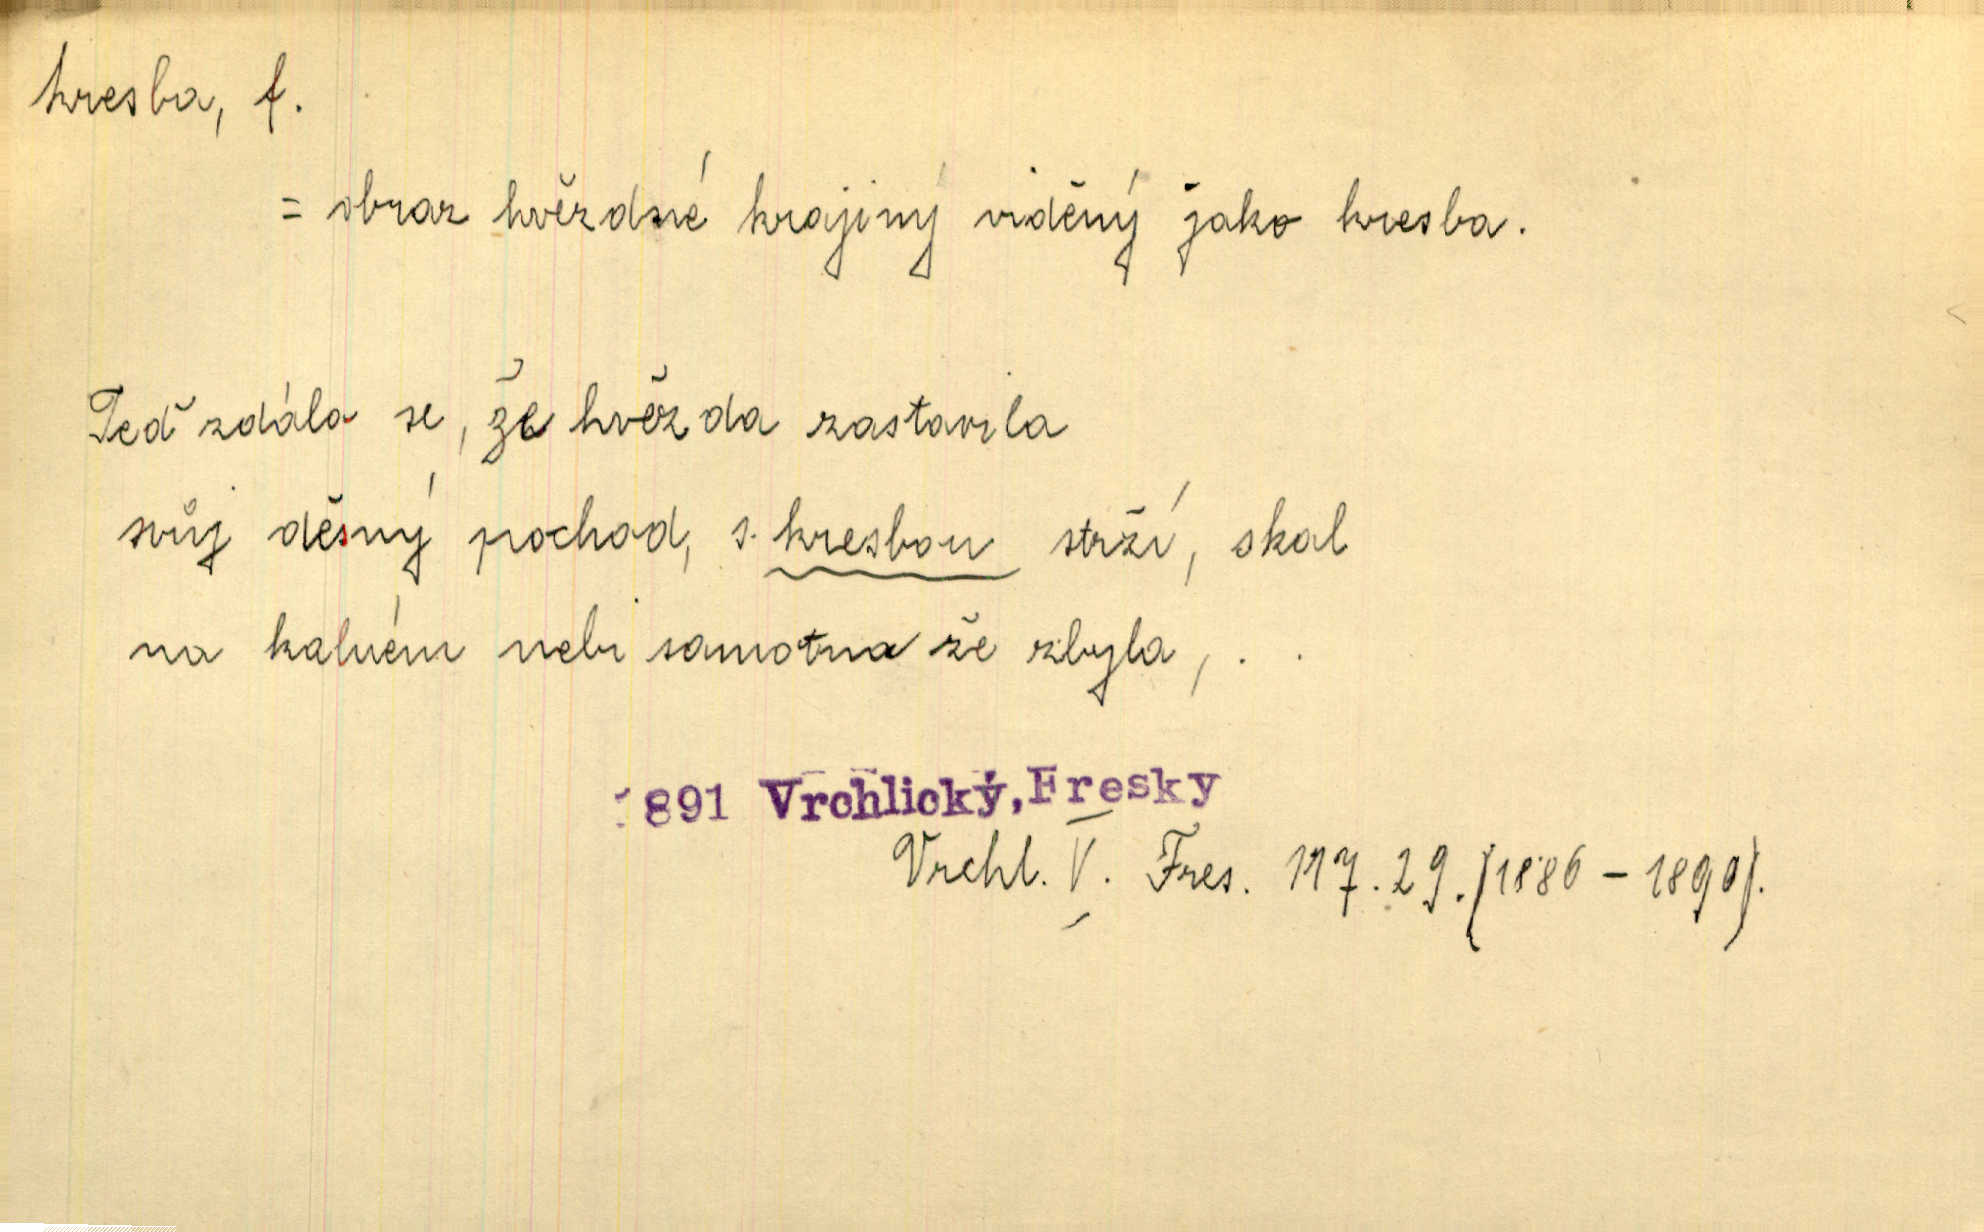 kresba, f.
= obraz hvězdné krajiný viděný jako kresba.
Teď zdála se, že hvězda zastavila
svůj děsný pochod, s kresbou strží, skal
na kalném nebi samotna že zbyla, . .
1891 Vrchlický, Fresky
Vrchl. V. Fres. 117. 29. (1886 – 1890).